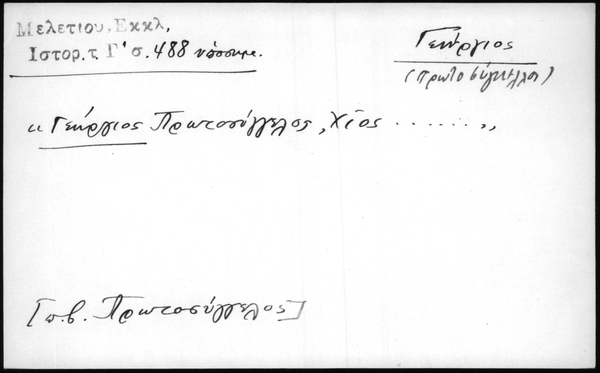 Μελετίου, Εκκλ,
Ιστορ. τ. Γ' σ. 488
Γεώργιος
(πρωτοσύγγελλος)
«Γεώργιος Πρωτοσύγγελος, Χῖος ......»
[π.β. Πρωτοσύγγελος]